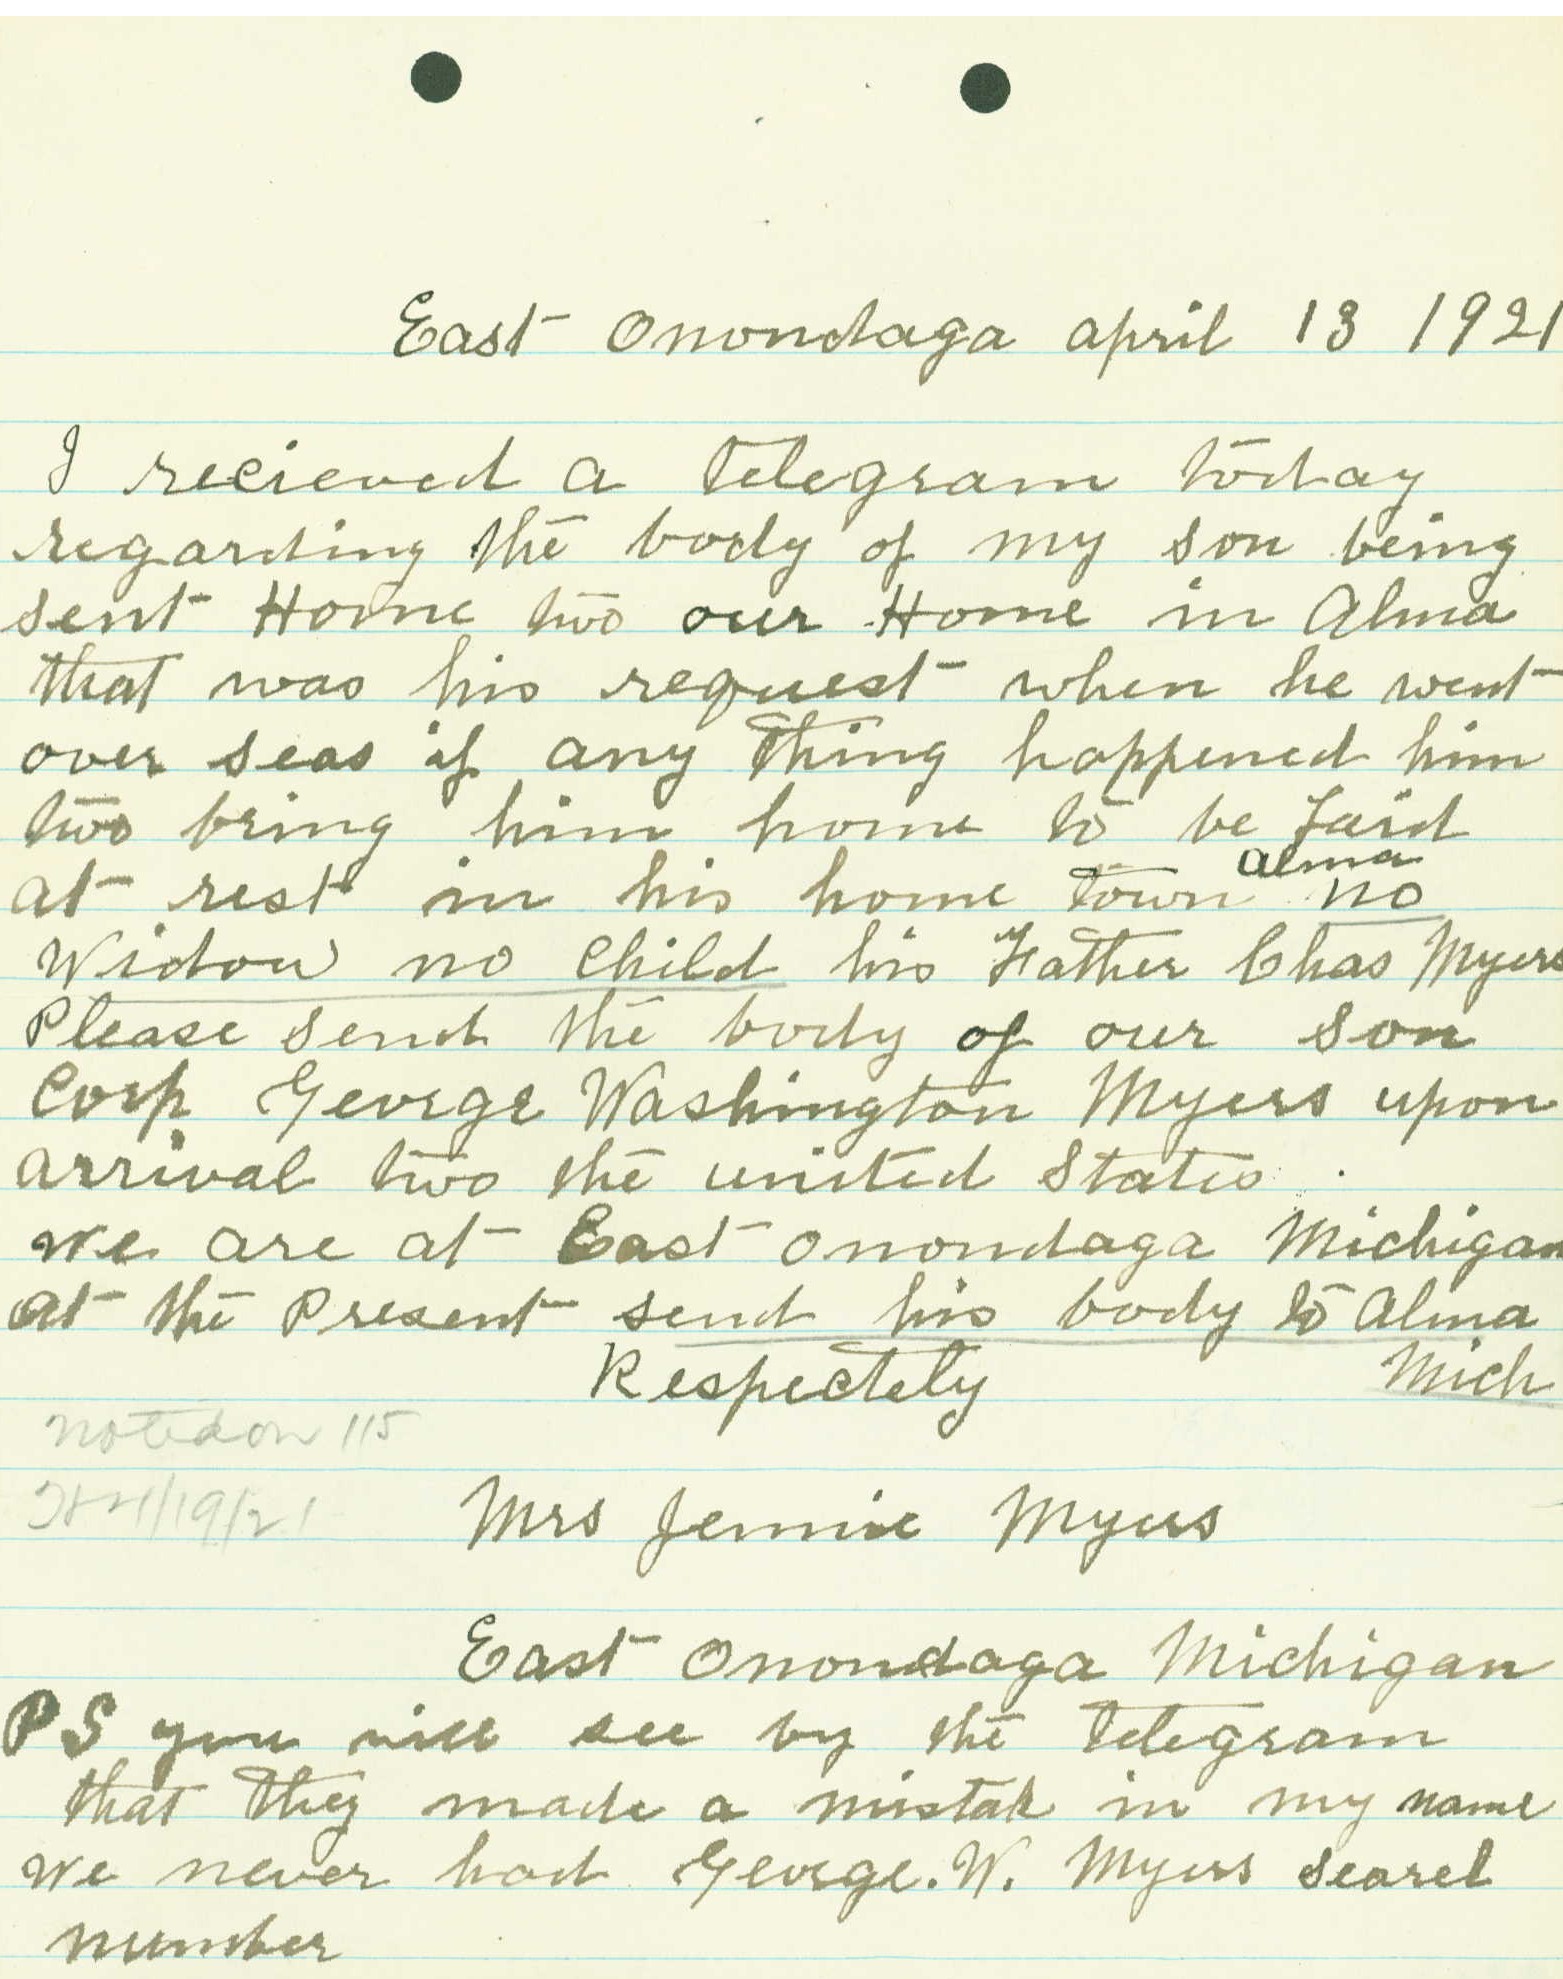 East Onondaga april 13 1921
I recieved a Telegram today
regarding the body of my son being
sent Home two our Home in Alma
that was his request when he went
over seas if any thing happened him
two bring him home to be Laid
at rest in his home town Alma no
Widow no Child his Father Chas Myers
Please send the body of our son
Corp George Washington Myers upon
arrival two the united States.
we are at East Onondaga Michigan
at the Present send his body to Alma
Respectely Mich
noted on 115
4/19/21
Mrs Jennie Myers
East Onondaga Michigan
PS you will see by the Telegram
that they made a mistak in my name
we never had George. W. Myers searel
number